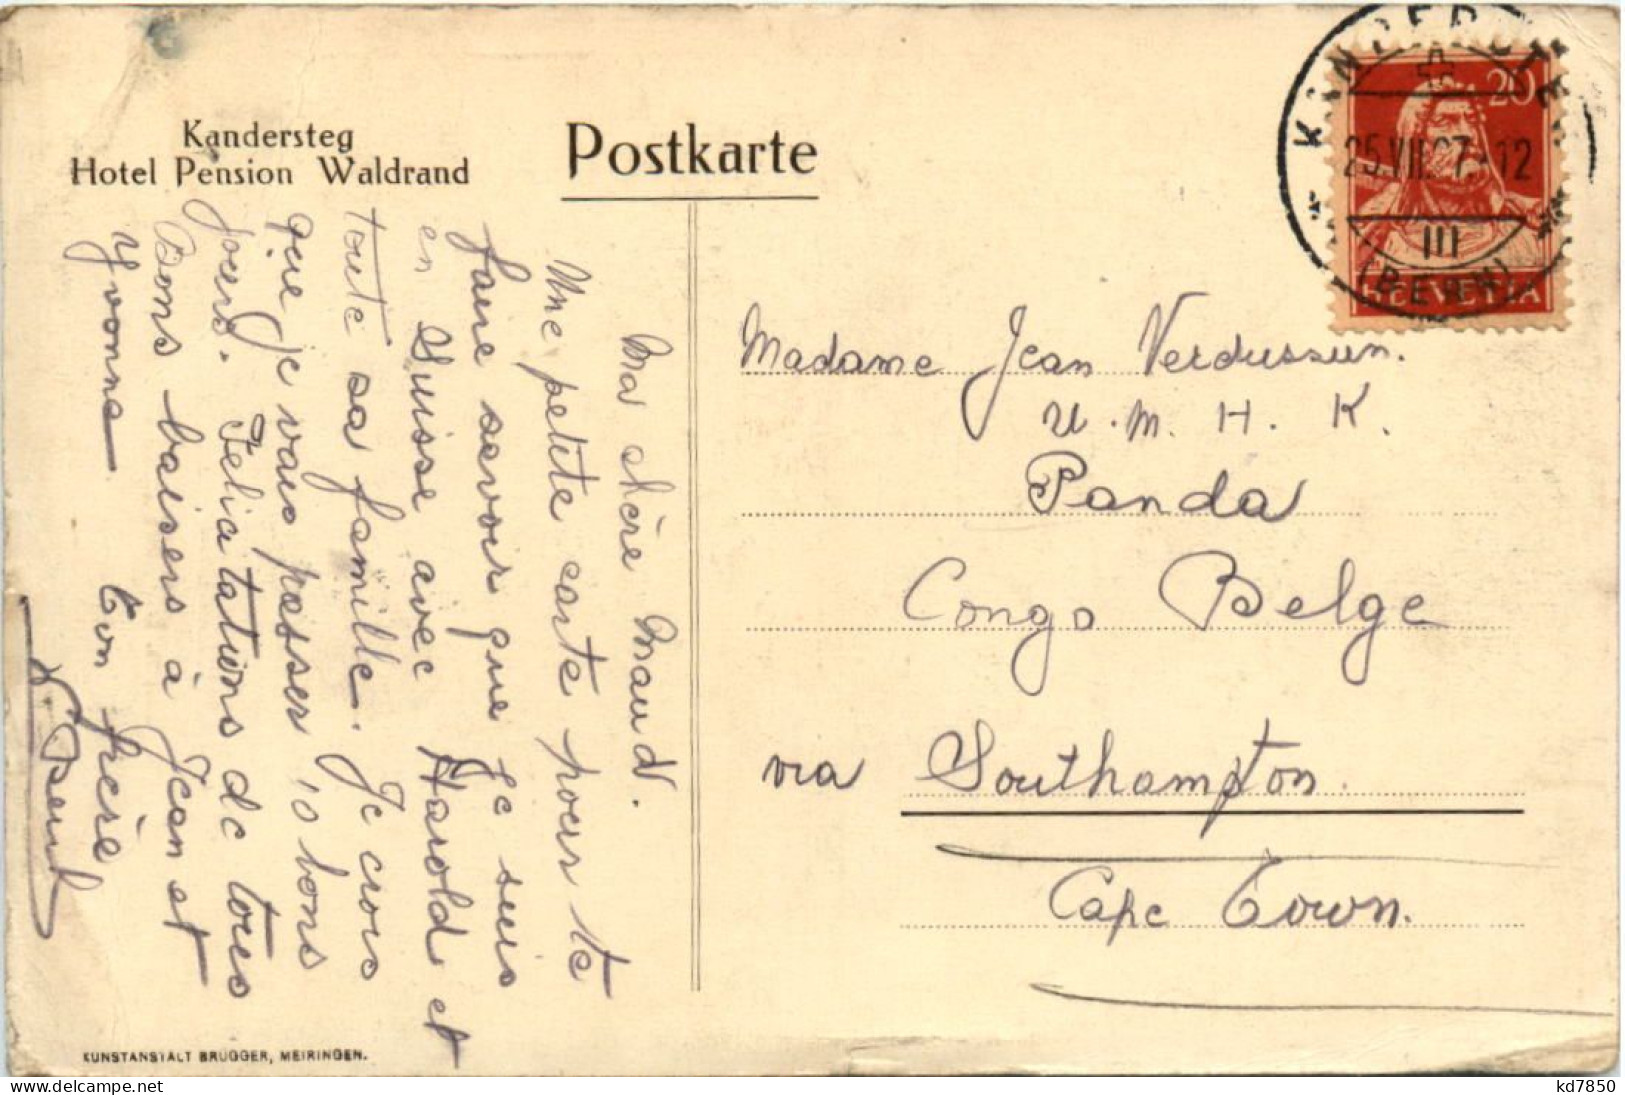 Kandersteg
Hotel Pension Waldrand
Postkarte
20
25.VII.27.-12
III
(BERN)
HELVETIA
Ma chère Maud.
Une petite carte pour te
faire savoir que je suis
en Suisse avec Harold et
toute sa famille. Je crois
que je vais passer 10 bons
jours. Felicitations de tous
Bons baisers à Jean et
Yvonne
Ton frère
Madame Jean Verdussen.
U. M. H. K.
Panda
Congo Belge
via Southampton.
Cape Town.
KUNSTANSTALT BRÜGGER, MEIRINGEN.
delcampe.net
kd7850